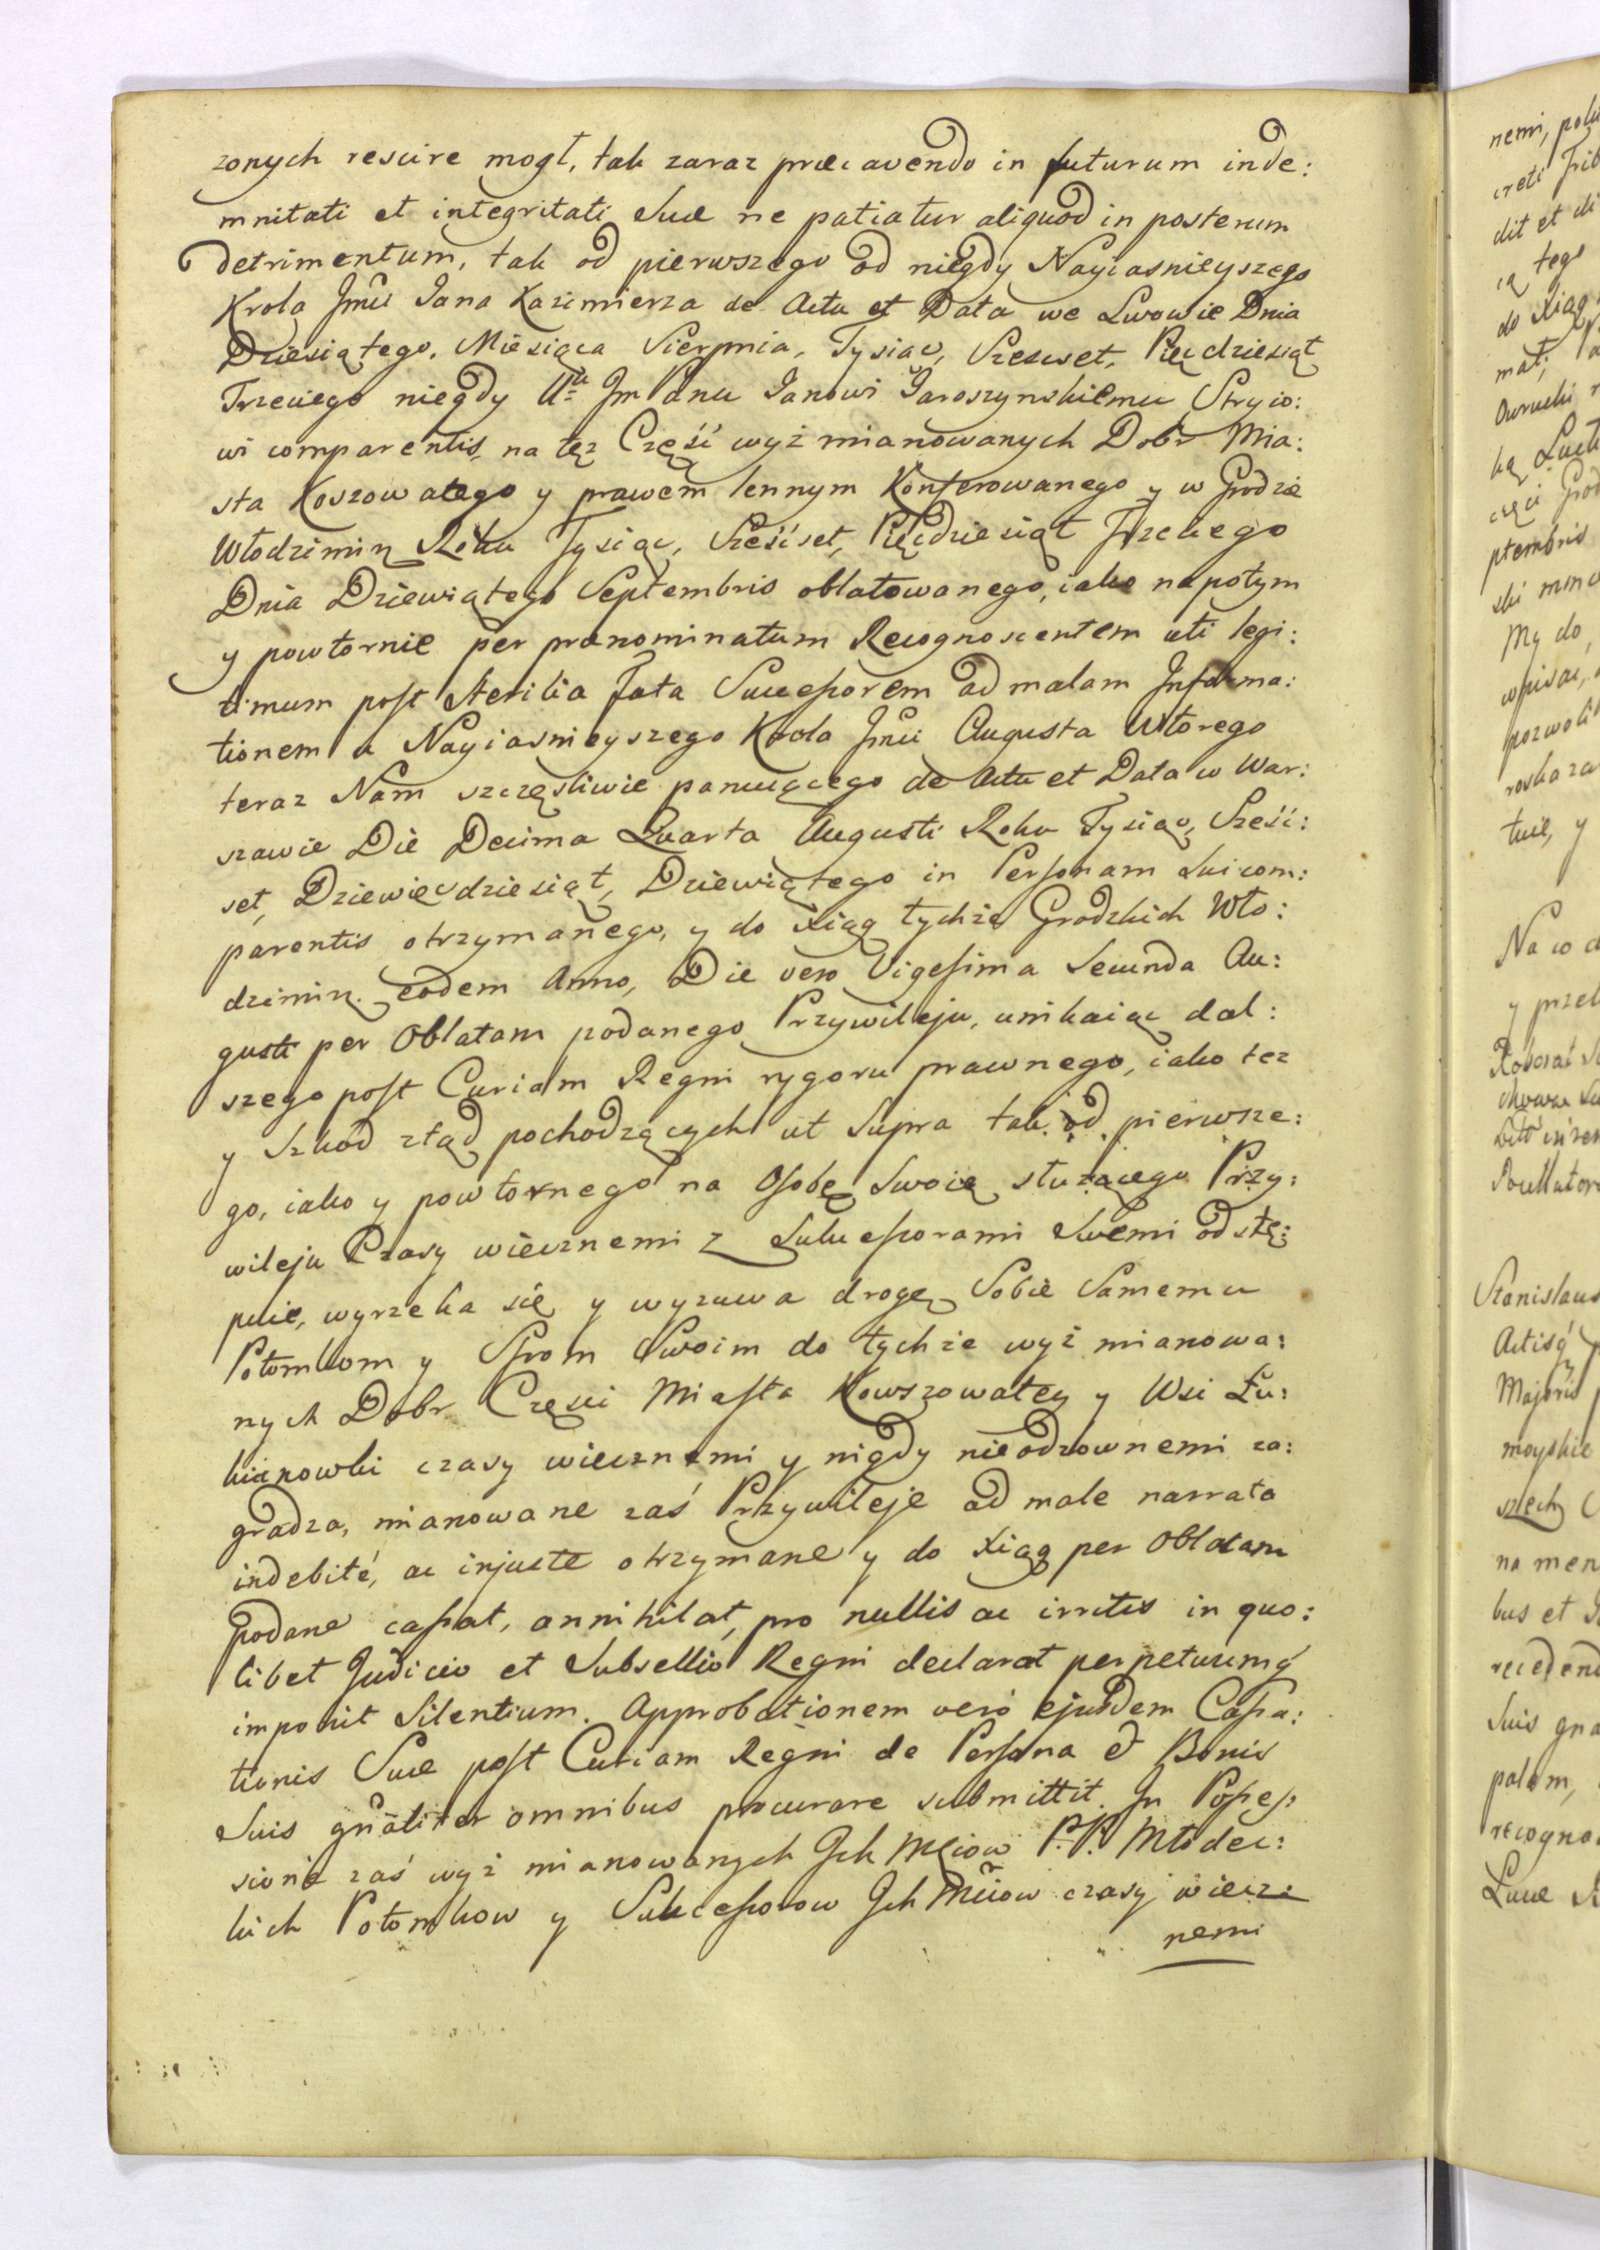 zonych rescire mogł, tak zaraz præcavendo in futurum inde:
mnitati et integritati Suæ ne patiatur aliquod in posterum
detrimentum, tak od pierwszego od niegdy Nayiasnieyszego
Krola Jmći Jana Kazimierza de Actu et Data we Lwowie Dnia
Dziesiątego, Miesiąca Sierpnia, Tysiąc, Szescset, Pięcdziesiąt
Trzeciego niegdy Ur Jm Panu Janowi Jaroszynskiemu Stryio:
wi comparentis, na tęż Część wyż mianowanych Dobr Mia:
sta Koszowatego y prawem lennym Konferowanego y w Grodzie
Włodzimirz Roku Tysiąc, Sześćset, Pięcdziesiąt Trzeciego
Dnia Dziewiątego Septembris oblatowanego, iako napotym
y powtornie per pranominatum Recognoscentem uti legi:
timum post sterilia fata Successorem ad malam Informa:
tionem a Nayiasnieyszego Krola Jmći Augusta Wtorego
teraz Nam szczęsliwie panuiącego de Actu et Data w War:
szawie Die Decima Quarta Augusti Roku Tysiąc, Sześć:
set, Dziewięcdziesiąt, Dziewiątego in Personam Sui com:
parentis otrzymanego, y do xiąg tychże Grodzkich Wło:
dzimirz. eodem Anno, Die vero Vigesima Secunda Au:
gusti per Oblatam podanego Przywileju, unikaiąc dal:
szego post Curiam Regni rygoru prawnego, iako tez
y Szkod ztąd pochodzących ut Supra tak od pierwsze:
go, iako y powtornego na Osobę Swoię służącego Przy:
wileju Czasy wiecznemi z Sukcessorami Swemi odstę:
puie, wyrzeka się y wyzuwa drogę Sobie Samemu
Potomkom y Sfrom Swoim do tychże wyż mianowa:
nych Dobr Części Miasta Kowszowatey y Wsi Łu:
kianowki czasy wiecznemi y nigdy nieodzownemi za:
gradza, mianowane zaś Przywileje ad male narrata
indebité, ac injuste otrzymane y do xiąg per Oblatam
podane cassat, annihilat, pro nullis ac irritis in quo:
libet Judicio et Subsellio Regni declarat perpetuumq́
imponit Silentium. Approbationem veró ejusdem Cassa:
tionis Suæ post Curiam Regni de Persona & Bonis
Suis gn̄aliter omnibus procurare submittit. In Posses:
sione zaś wyż mianowanych Ich Mćiow P.P. Młodec:
kich Potomkow y Sukcessorow Ich Mćiow czasy wiecz:
nemi